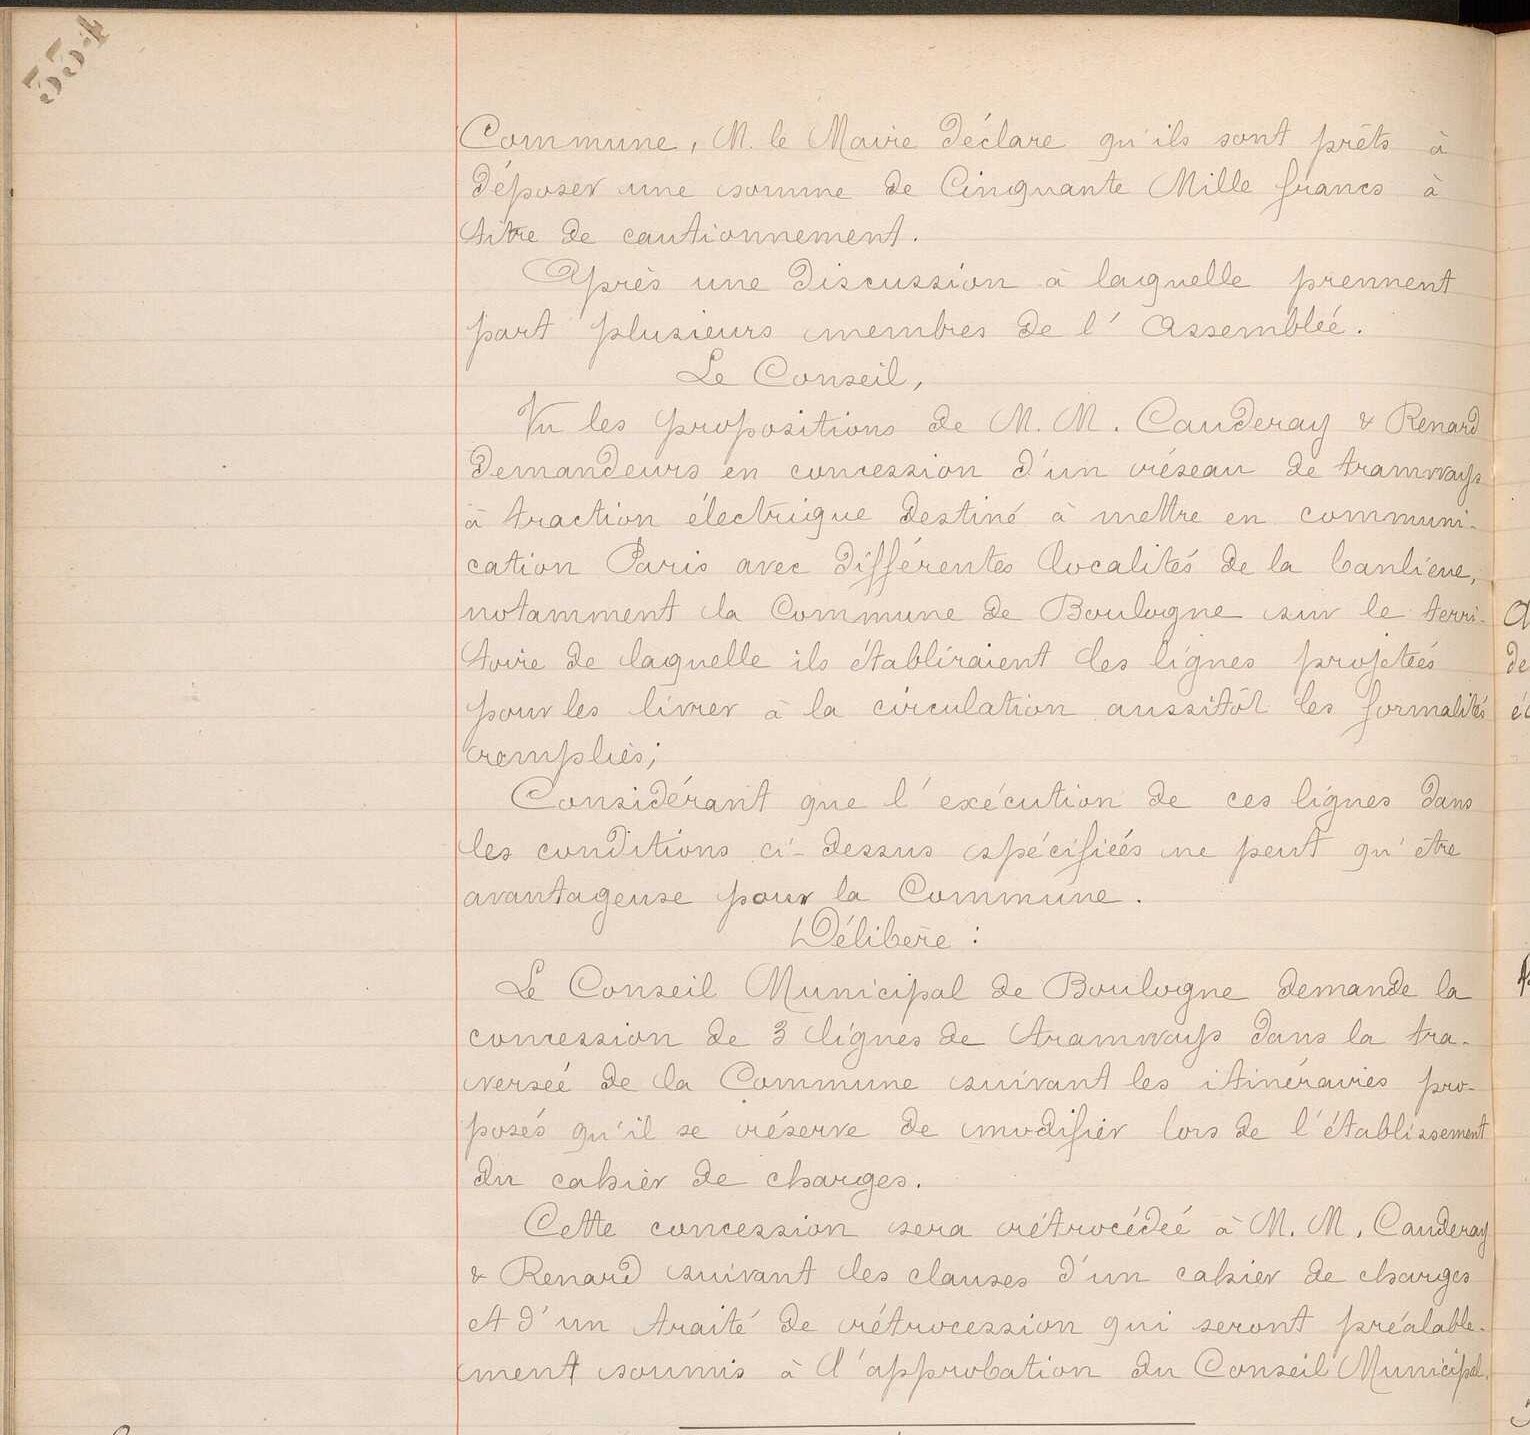 334
Commune, M. le Maire déclare qu'ils sont prêts à
déposer une somme de Cinquante Mille francs à
titre de cautionnement.
Après une discussion à laquelle prennent
part plusieurs membres de l'Assemblée.
Le Conseil,
Vu les propositions de M. M. Cauderay & Renard
demandeurs en concession d'un réseau de tramways
à traction électrique destiné à mettre en communi-
cation Paris avec différentes localités de la banlieue,
notamment la Commune de Boulogne sur le terri-
toire de laquelle ils établiraient les lignes projetées
pour les livrer à la circulation aussitôt les formalités
remplies;
Considérant que l'exécution de ces lignes dans
les conditions ci-dessus spécifiées ne peut qu'être
avantageuse pour la Commune.
Délibère :
Le Conseil Municipal de Boulogne demande la
concession de 3 lignes de tramways dans la tra-
versée de la Commune suivant les itinéraires pro-
posés qu'il se réserve de modifier lors de l'établissement
du cahier de charges.
Cette concession sera rétrocédée à M. M. Cauderay
& Renard suivant les clauses d'un cahier de charges
et d'un traité de rétrocession qui seront préalable-
ment soumis à l'approbation du Conseil Municipal.